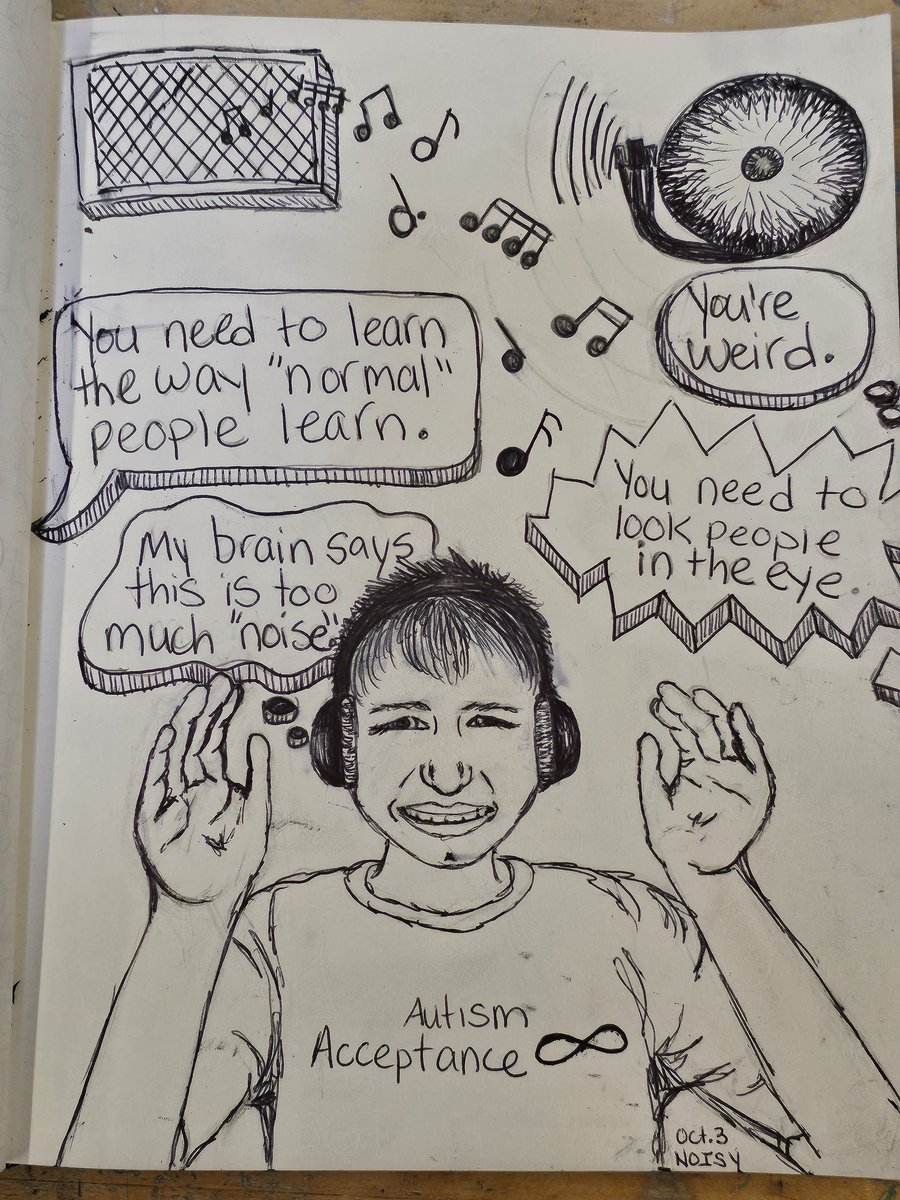 You need to learn
the way "normal"
people learn.
You're
weird.
You need to
look people
in the eye.
My brain says
this is too
much "noise"
Autism
Acceptance
Oct.3
NOISY